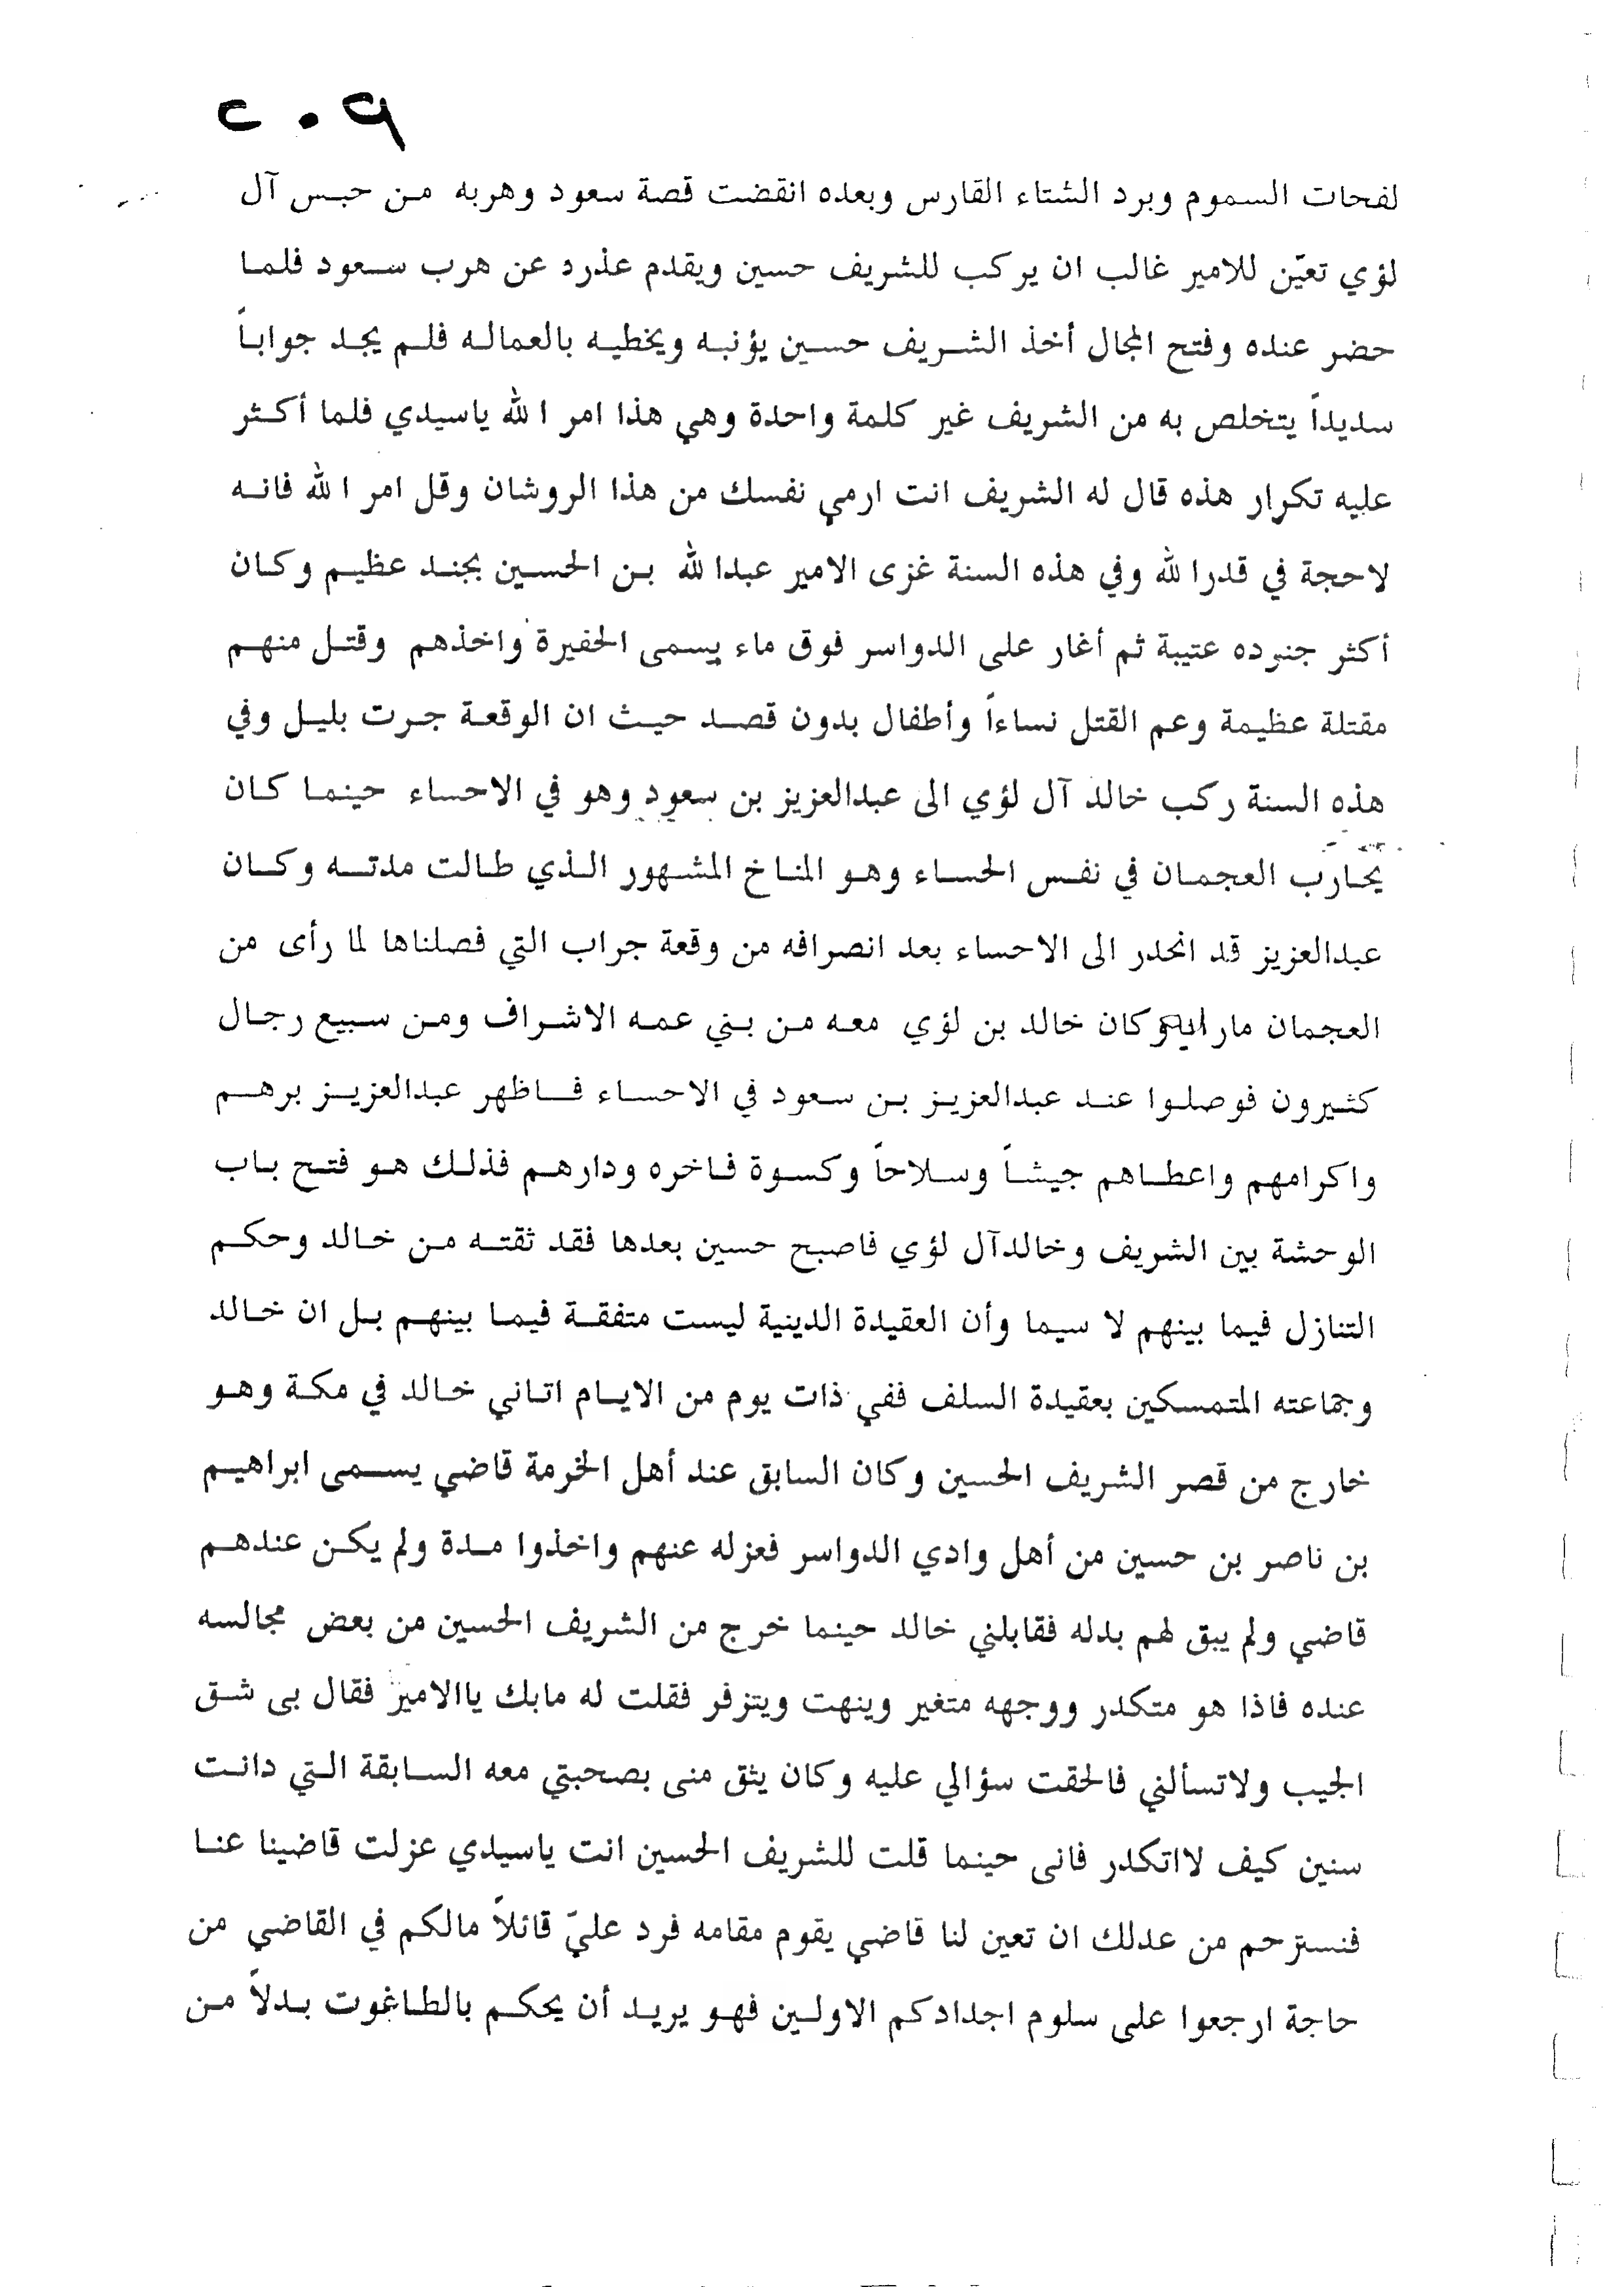 ٢٠٩
لفحات السموم وبرد الشتاء القارس وبعده انقضت قصة سعود وهربه من حبس آل
لؤي تعيّن للامير غالب ان يركب للشريف حسين ويقدم عذره عن هرب سعود فلما
حضر عنده وفتح المجال أخذ الشريف حسين يؤنبه ويخطيه بالعماله فلم يجد جواباً
سديداً يتخلص به من الشريف غير كلمة واحدة وهي هذا امر الله ياسيدي فلما أكثر
عليه تكرار هذه قال له الشريف انت ارمي نفسك من هذا الروشان وقل امر الله فانه
لاحجة في قدرالله وفي هذه السنة غزى الامير عبدالله بن الحسين بجند عظيم وكان
أكثر جنوده عتيبة ثم أغار على الدواسر فوق ماء يسمى الحفيرة واخذهم وقتل منهم
مقتلة عظيمة وعم القتل نساءاً وأطفال بدون قصد حيث ان الوقعة جرت بليل وفي
هذه السنة ركب خالد آل لؤي الى عبدالعزيز بن سعود وهو في الاحساء حينما كان
يحارب العجمان في نفس الحساء وهو المناخ المشهور الذي طالت مدته وكان
عبدالعزيز قد انحدر الى الاحساء بعد انصرافه من وقعة جراب التي فصلناها لما رأى من
العجمان كان خالد بن لؤي معه من بني عمه الاشراف ومن سبيع رجال
كثيرون فوصلوا عند عبدالعزيز بن سعود في الاحساء فاظهر عبدالعزيز برهم
واكرامهم واعطاهم جيشاً وسلاحاً وكسوة فاخره ودارهم فذلك هو فتح باب
الوحشة بين الشريف وخالدآل لؤي فاصبح حسين بعدها فقد ثقته من خالد وحكم
التنازل فيما بينهم لا سيما وأن العقيدة الدينية ليست متفقة فيما بينهم بل ان خالد
وجماعته المتمسكين بعقيدة السلف ففي ذات يوم من الايام اتاني خالد في مكة وهو
خارج من قصر الشريف الحسين وكان السابق عند أهل الخرمة قاضي يسمى ابراهيم
بن ناصر بن حسين من أهل وادي الدواسر فعزله عنهم واخذوا مدة ولم يكن عندهم
قاضي ولم يبق لهم بدله فقابلني خالد حينما خرج من الشريف الحسين من بعض مجالسه
عنده فاذا هو متكدر ووجهه متغير وينهت ويتزفر فقلت له مابك ياالامير فقال بى شق
الجيب ولاتسألني فالحقت سؤالي عليه وكان يثق منى بصحبتي معه السابقة التي دانت
سنين كيف لااتكدر فانى حينما قلت للشريف الحسين انت ياسيدي عزلت قاضينا عنا
فنسترحم من عدلك ان تعين لنا قاضي يقوم مقامه فرد عليّ قائلاً مالكم في القاضي من
حاجة ارجعوا على سلوم اجدادكم الاولين فهو يريد أن يحكم بالطاغوت بدلاً من